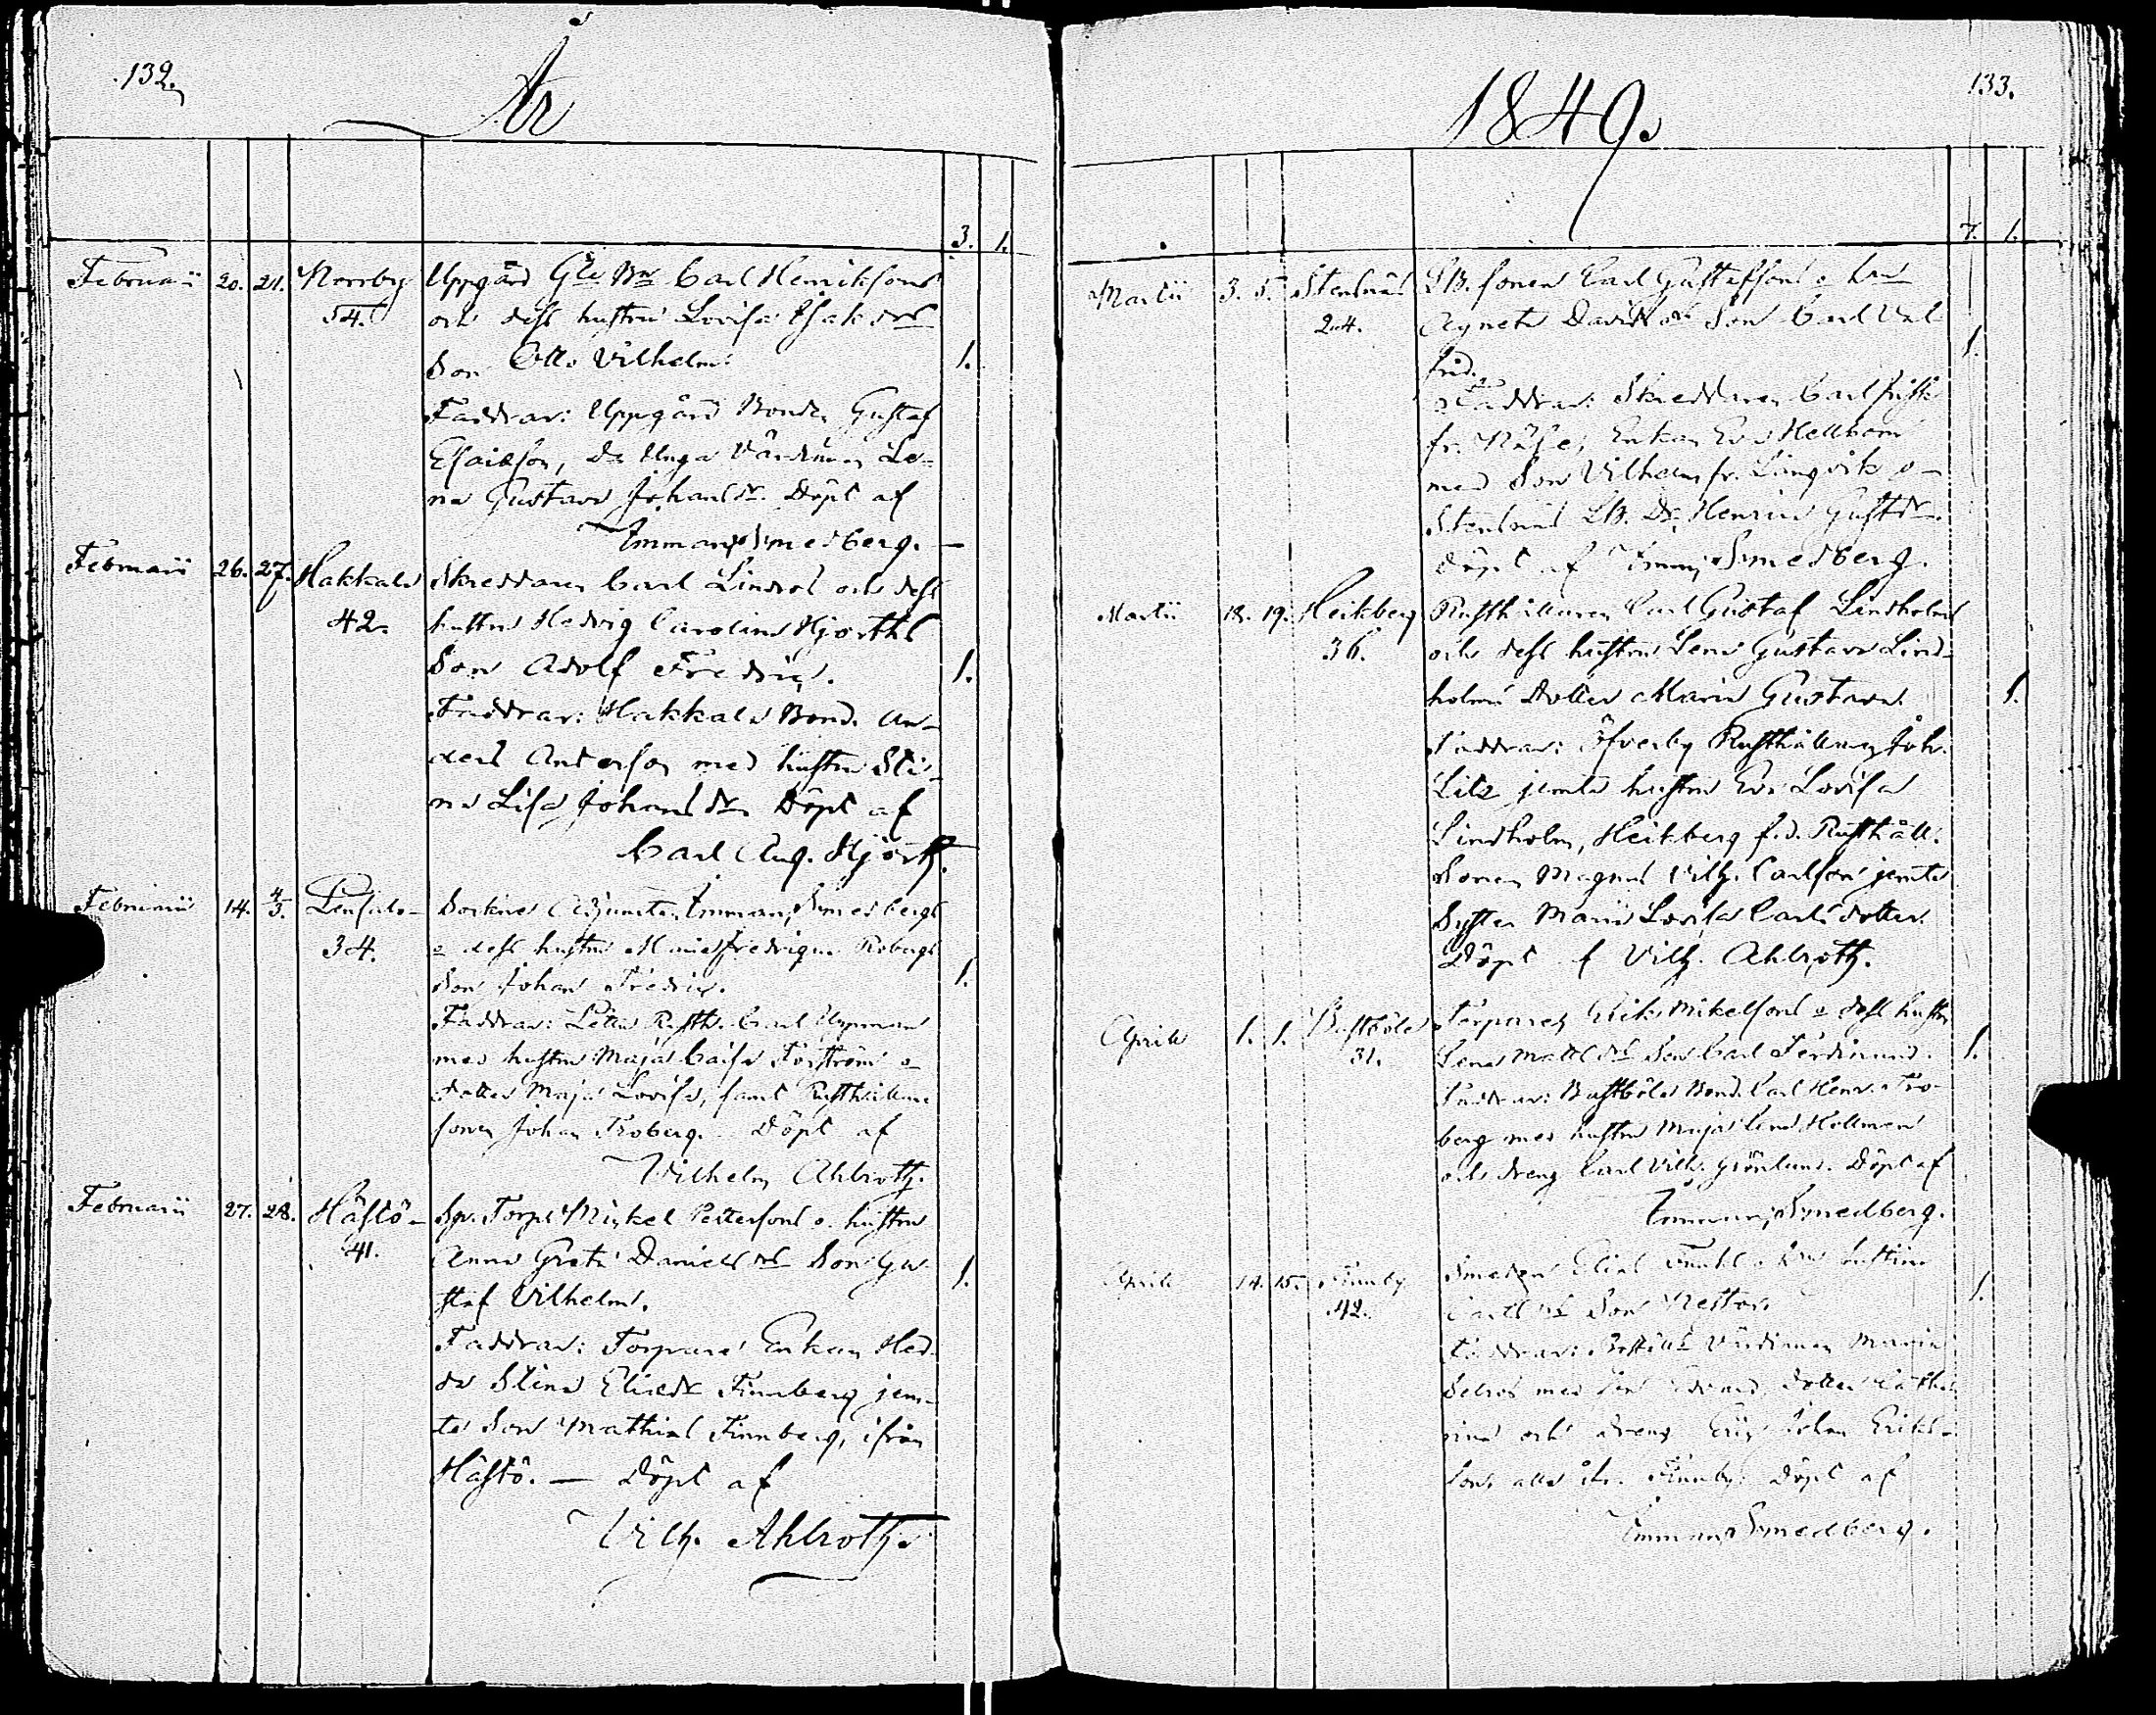 132.
År
3. 1.
Februarii 20. 21. Norrby Uppgård Carl Henriksons
54. och dess hustru Lovisa Esak drs
Son Otto Vilhelm. 1.
Faddrar: Uppgård Bonden Gustaf
Esaikson, Unga Värdinnan Le-
na Gustava Johans dr. Döpt af
Imman. Smedberg.
Februarii 26. 27. Hakkala Skreddaren Carl Lindros och dess
42. hustru Hedvig Carolina Hjorths
Son Adolf Fredric. 1.
Faddrar: Hakkala Bond. An-
ders Anderson med hustru Sti-
na Lisa Johans dr. Döpt af
Carl Aug. Hjorth.
Februarii 14. 4/3. Pensalo- Sockne Adjuncten Imman. Smedbergs
34. o dess hustru Maria Fredrique Robergs
Son Johan Fredric. 1.
Faddrar: Rusth. Carl
med hustru Maja Caisa Forström o
dotter Maja Lovisa, samt Rusthållare
sonen Johan Froberg. Döpt af
Vilhelm Ahlroth.
Februarii 27. 28. Håstö- Sp. Torp. Mickel Pettersons o. hustru
41. Anna Greta Daniels drs Son Gu- 1.
staf Vilhelm.
Faddrar: Torpare Enkan Hed-
da Stina Elias dr Finnberg jem-
te Son Mathias Finnberg, ifrån
Håstö. — Döpt af
Vilh. Ahlroth.
1849.
133.
7. 1.
Martii 3. 5. Stensnäs LB. sonen Carl Gustafsons o
24. Agneta David drs Son Carl Val-
frid. 1.
Faddrar: Skreddaren Carl
fr. Näse, Enkan Eva Hellbom
med Son Vilhelm fr. Långvik o
Stensnäs LB. Dr. Henrica Gust dr.
Döpt af Imman. Smedberg.
Martii 18. 19. Heikberg Rusthållaren Carl Gustaf Lindholms
36. och dess hustru Lena Gustava Lind-
holms Dotter Maria Gustava. 1.
Faddrar: Öfverby Rusthållaren Joh.
Litz jemte hustru Eva Lovisa
Lindholm, Heikberg f.d. Rusthåll.
Sonen Magnus Vilh. Carlson jemte
Syster Maria Lovisa Carls dotter.
Döpt af Vilh. Ahlroth.
Aprilis 1. 1. Bustböle Torparen Erik Mikelsons o dess hustru
31. Lena Matts drs Son Carl Ferdinand. 1.
Faddrar: Bustböle Bond. Carl Henr. Fro-
berg med hustru Maja Lena Hellmen
och dreng Carl Vilh. Grönlund. Döpt af
Imman. Smedberg.
Aprilis 14. 15. Finnby Smeden Elias
42. Carls drs Son Nestor. 1.
Faddrar: Värdinnan Maria
Selroos med Son dotter Catha-
rina och dreng Eric Johan Erik-
son, alla ifr. Finnby. Döpt af
Imman. Smedberg.